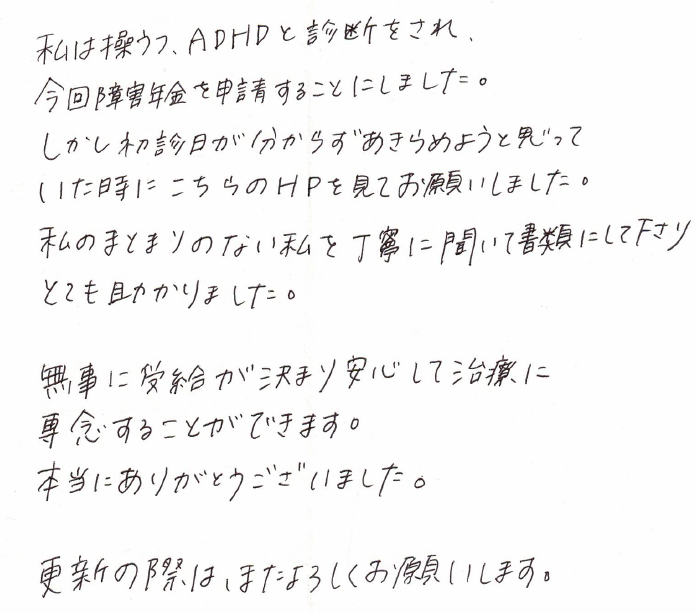 私は操うつ、ADHDと診断をされ、
今回障害年金を申請することにしました。
しかし初診日が分からずあきらめようと思って
いた時にこちらのHPを見てお願いしました。
私のまとまりのない私を丁寧に聞いて書類にして下さり
とても助かりました。
無事に受給が決まり安心して治療に
専念することができます。
本当にありがとうございました。
更新の際は、またよろしくお願いします。